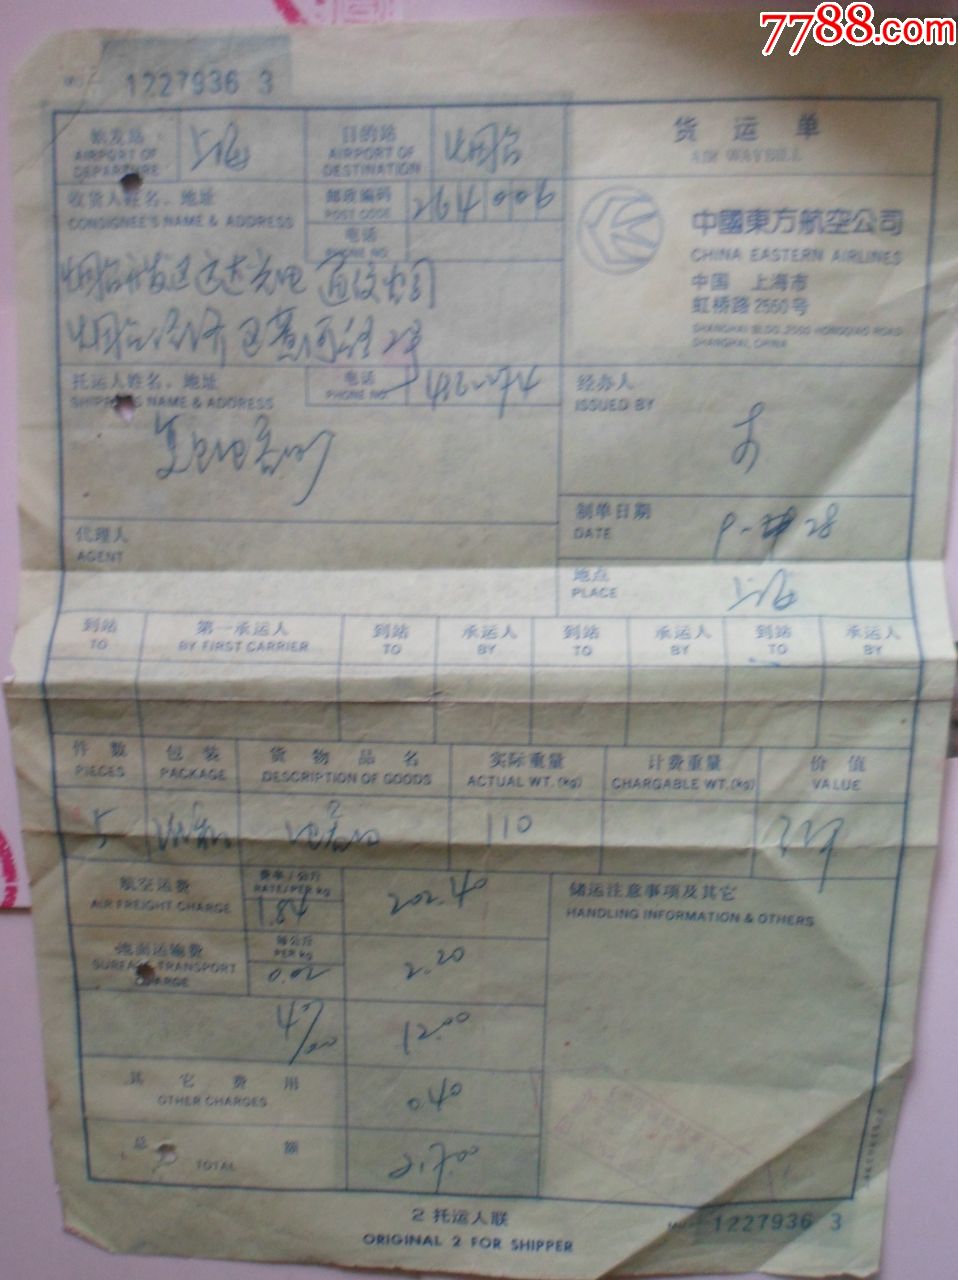 7788.com
1227936 3
航发站
AIRPORT OF
DEPARTURE
上海
目的站
AIRPORT OF
DESTINATION
烟台
货运单
AIR WAYBILL
收货人姓名、地址
CONSIGNEE'S NAME & ADDRESS
邮政编码
POST CODE
264006
电话
PHONE NO
中國東方航空公司
CHINA EASTERN AIRLINES
中国 上海市
虹桥路2550号
SHANGHAI BLDG. 2550 HONGQIAO ROAD
SHANGHAI, CHINA
烟台
烟台
托运人姓名、地址
SHIPPER'S NAME & ADDRESS
电话
PHONE NO
经办人
ISSUED BY
代理人
AGENT
制单日期
DATE
28
地点
PLACE
上海
到站
TO
第一承运人
BY FIRST CARRIER
到站
TO
承运人
BY
到站
TO
承运人
BY
到站
TO
承运人
BY
件数
PIECES
包装
PACKAGE
货物品名
DESCRIPTION OF GOODS
实际重量
ACTUAL WT. (kg)
计费重量
CHARGABLE WT. (kg)
价值
VALUE
5
110
航空运费
AIR FREIGHT CHARGE
费率/公斤
RATE/PER kg
1.84
202.40
储运注意事项及其它
HANDLING INFORMATION & OTHERS
地面运输费
SURFACE TRANSPORT
CHARGE
每公斤
PER kg
0.02
2.20
12.00
其它费用
OTHER CHARGES
0.40
总额
TOTAL
217.00
2 托运人联
ORIGINAL 2 FOR SHIPPER
1227936 3